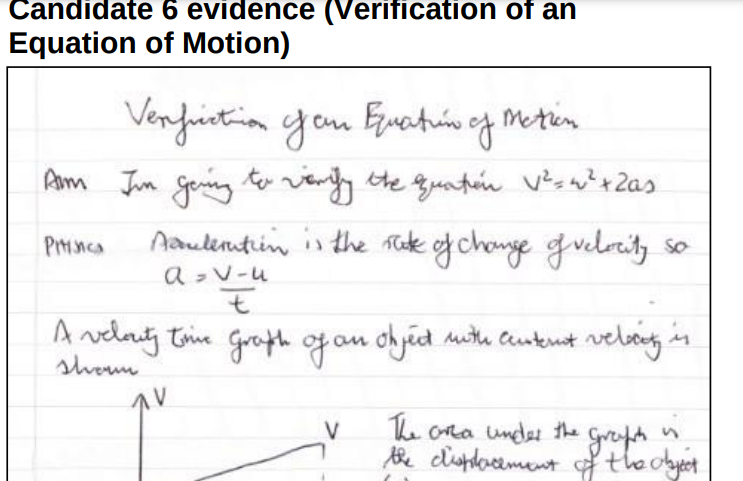 Candidate 6 evidence (Verification of an
Equation of Motion)
Verification of an Equation of Motion
Aim Im going to verify the equation v²=u²+2as
PHYSICS Acceleration is the rate of change of velocity so
a = v-u
t
A velocity time graph of an object with constant velocity is
shown
V
V
The area under the graph is
the displacement of the object